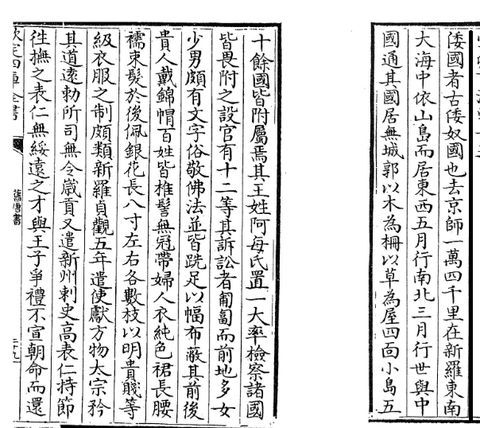 倭國者古倭奴國也去京師一萬四千里在新羅東南
大海中依山島而居東西五月行南北三月行世與中
國通其國居無城郭以木為柵以草為屋四面小島五
十餘國皆附屬焉其王姓阿每氏置一大率檢察諸國
皆畏附之設官有十二等其訴訟者匍匐而前地多女
少男頗有文字俗敬佛法並皆跣足以幅布蔽其前後
貴人戴錦帽百姓皆椎髻無冠帶婦人衣純色裙長腰
襦束髮於後佩銀花長八寸左右各數枝以明貴賤等
級衣服之制頗類新羅貞觀五年遣使獻方物太宗矜
其道遠勅所司無令歲貢又遣新州刺史高表仁持節
徃撫之表仁無綏遠之才與王子爭禮不宣朝命而還
舊唐書